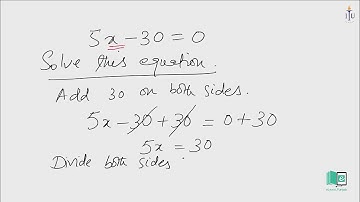 IU
5x - 30 = 0
Solve this equation.
Add 30 on both sides.
5x - 30 + 30 = 0 + 30
5x = 30
Divide both sides